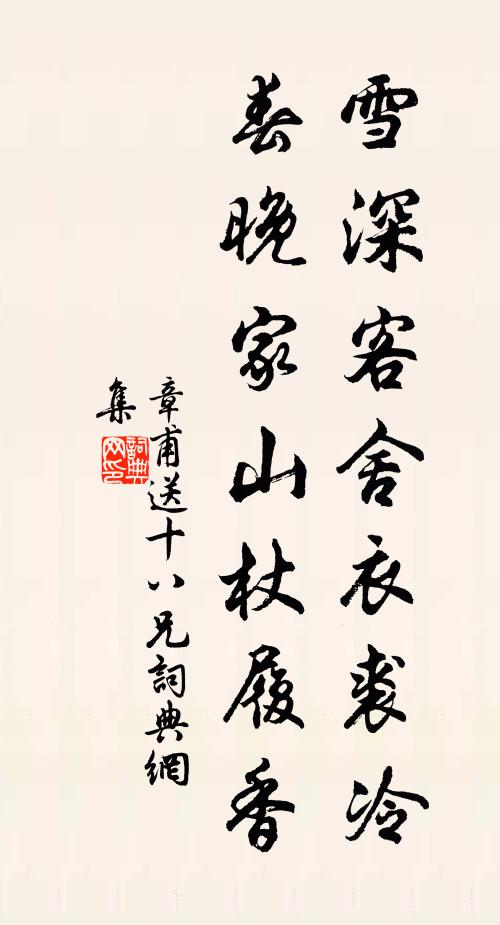 雪深客舍衣裘冷
春晚家山杖履香
章甫送十八兄詞典網
集
詞典
网印